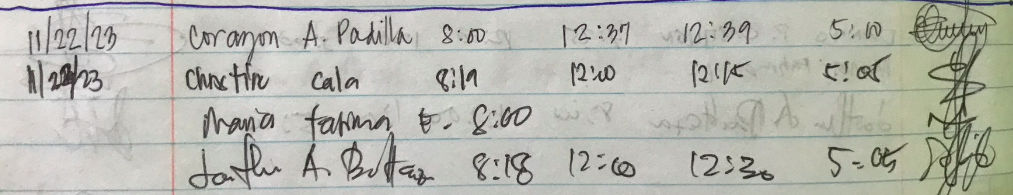 11/22/23 Corazon A. Padilla 8:00 12:37 12:39 5:10
11/22/23 Christine Cala 8:19 12:00 12:15 5:05
Maria Fatima t. 8:00
A. 8:18 12:00 12:30 5:05